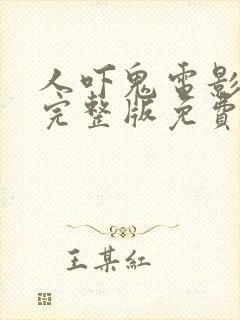 人吓鬼电影
完整版免費
王某紅